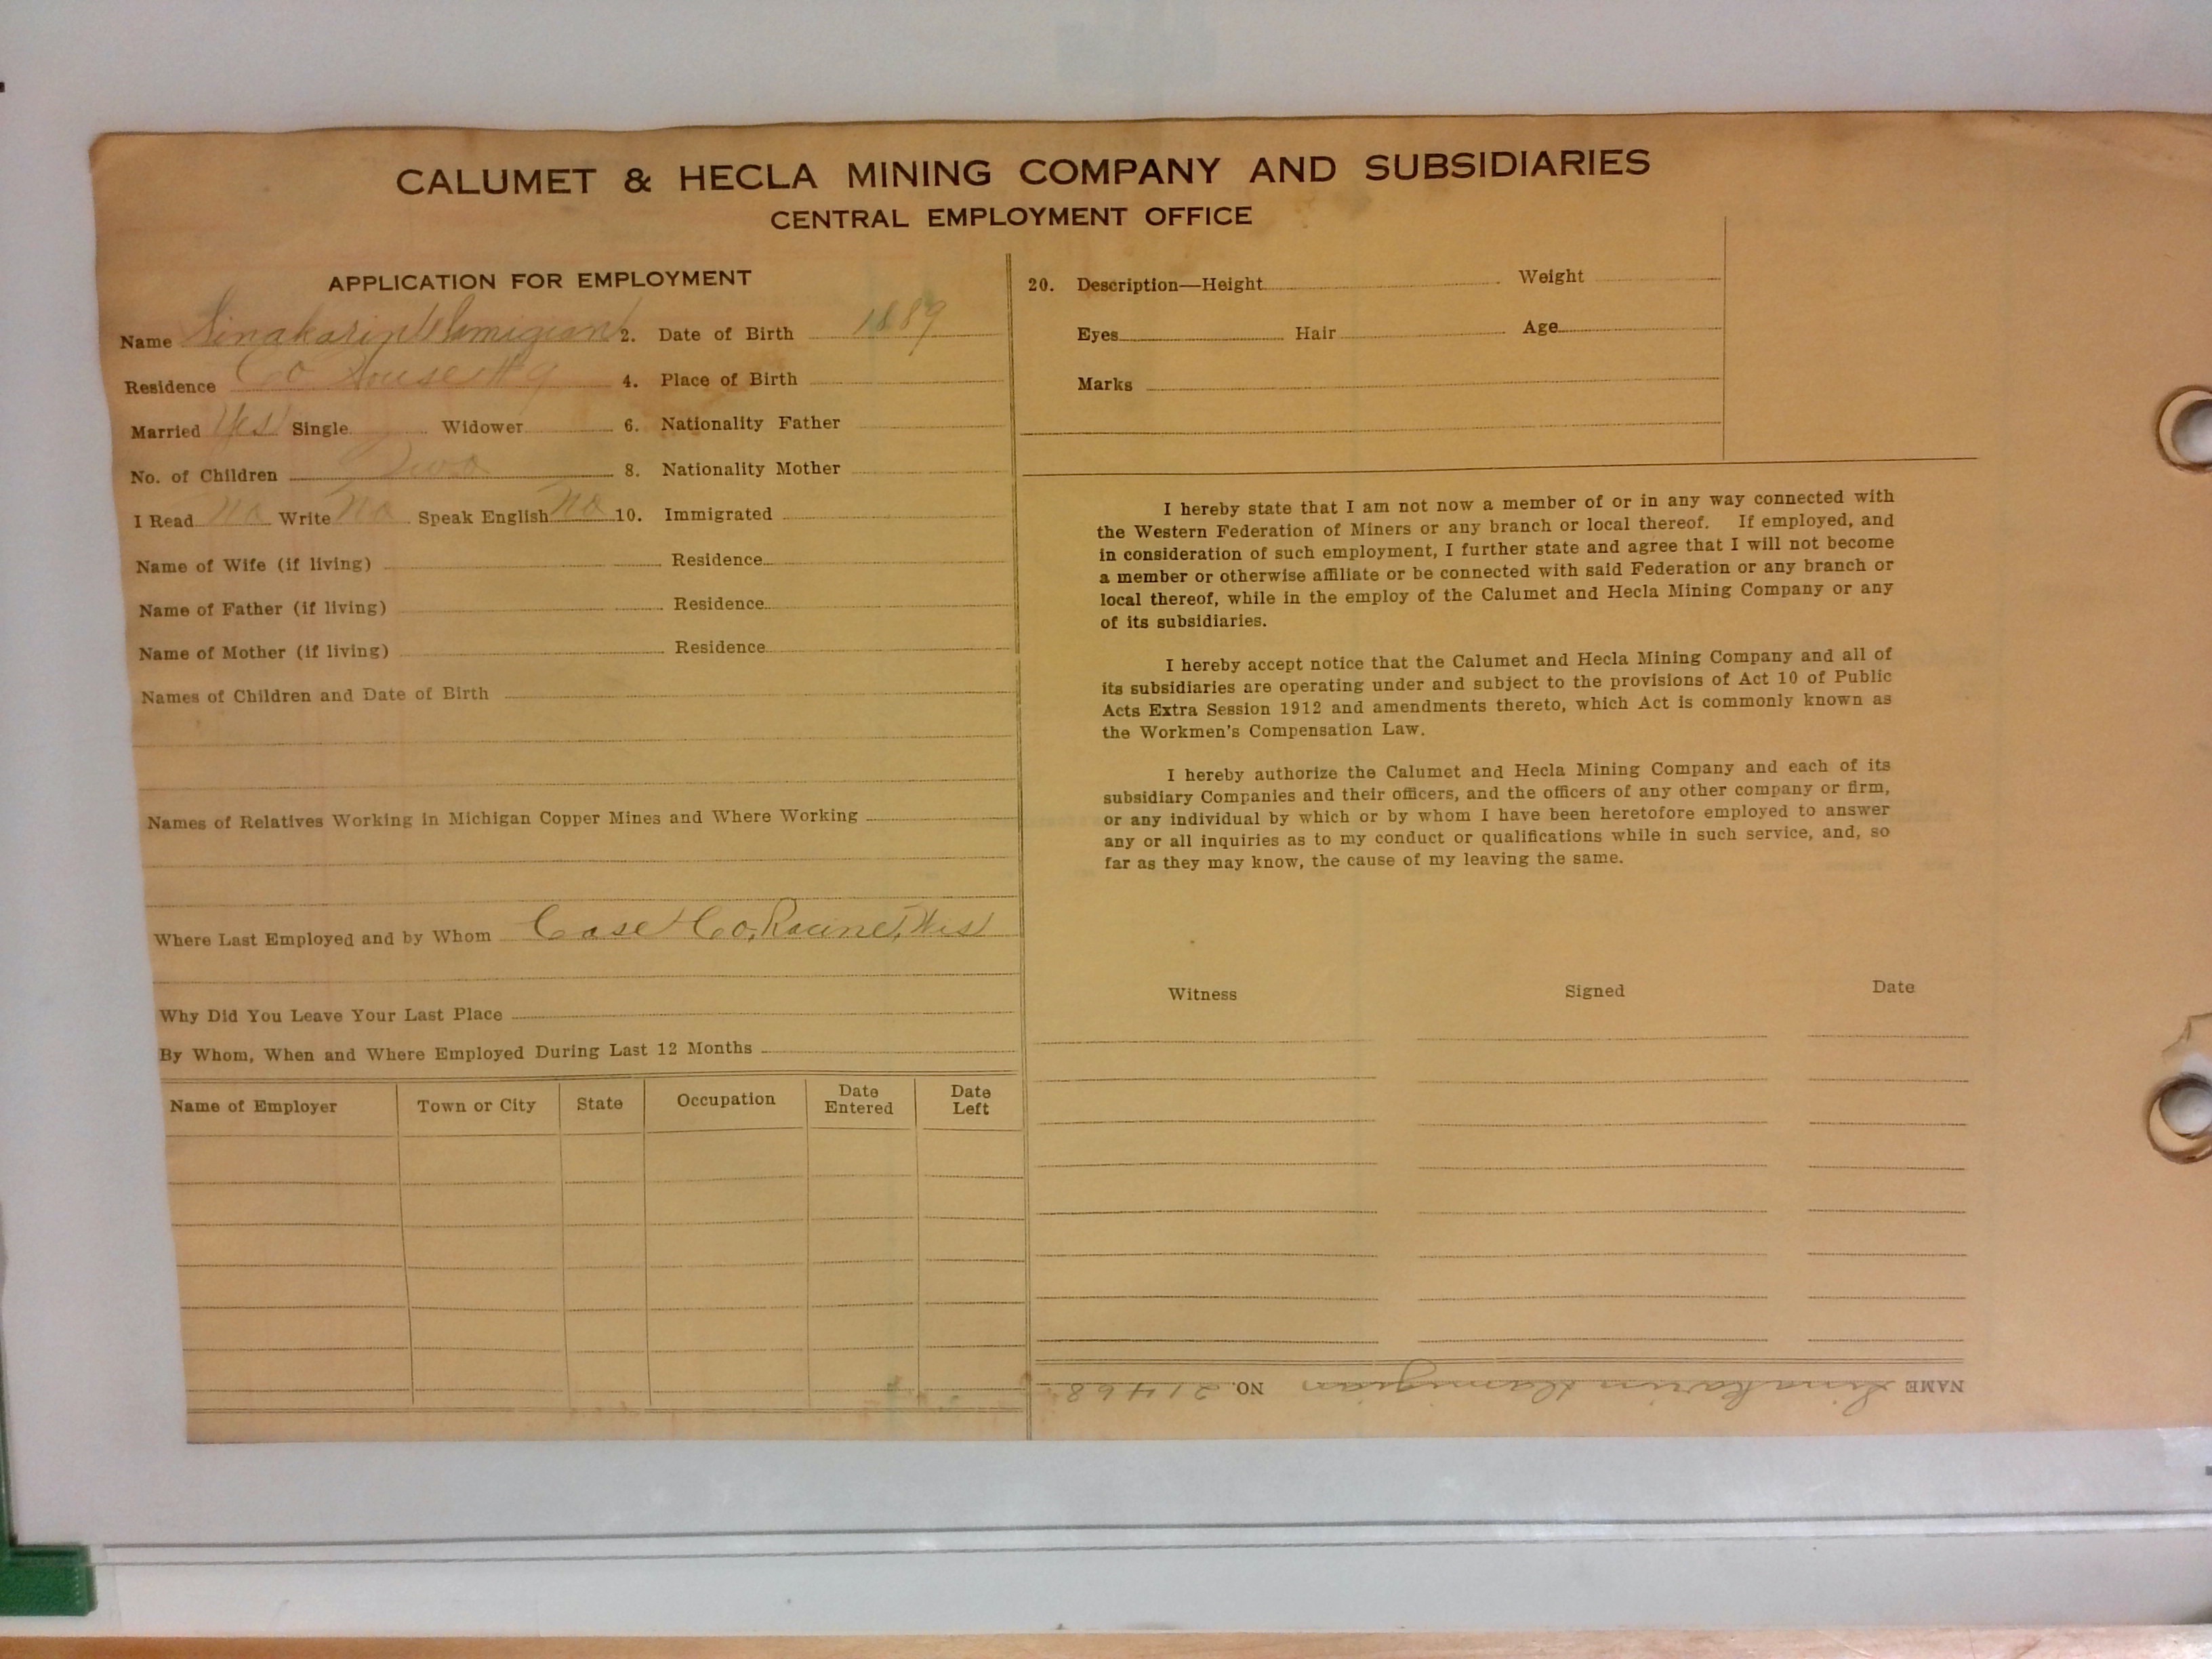 CALUMET & HECLA MINING COMPANY AND SUBSIDIARIES
CENTRAL EMPLOYMENT OFFICE
APPLICATION FOR EMPLOYMENT
Name Sinakarin Hamigian 2. Date of Birth 1889
Residence Co House #9 4. Place of Birth
Married Yes Single Widower 6. Nationality Father
No. of Children Two 8. Nationality Mother
I Read no Write no Speak English no 10. Immigrated
Name of Wife (if living) Residence
Name of Father (if living) Residence
Name of Mother (if living) Residence
Names of Children and Date of Birth
Names of Relatives Working in Michigan Copper Mines and Where Working
Where Last Employed and by Whom Case Co, Racine, Wis
Why Did You Leave Your Last Place
By Whom, When and Where Employed During Last 12 Months
Name of Employer Town or City State Occupation Date Entered Date Left
20. Description—Height Weight
Eyes Hair Age
Marks
I hereby state that I am not now a member of or in any way connected with
the Western Federation of Miners or any branch or local thereof. If employed, and
in consideration of such employment, I further state and agree that I will not become
a member or otherwise affiliate or be connected with said Federation or any branch or
local thereof, while in the employ of the Calumet and Hecla Mining Company or any
of its subsidiaries.
I hereby accept notice that the Calumet and Hecla Mining Company and all of
its subsidiaries are operating under and subject to the provisions of Act 10 of Public
Acts Extra Session 1912 and amendments thereto, which Act is commonly known as
the Workmen's Compensation Law.
I hereby authorize the Calumet and Hecla Mining Company and each of its
subsidiary Companies and their officers, and the officers of any other company or firm,
or any individual by which or by whom I have been heretofore employed to answer
any or all inquiries as to my conduct or qualifications while in such service, and, so
far as they may know, the cause of my leaving the same.
Witness Signed Date
NAME Sinakarin Hamigian NO. 21468